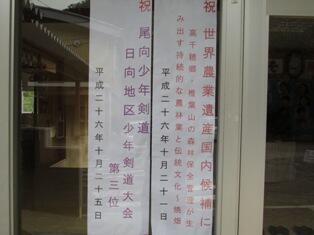 祝 世界農業遺産国内候補に
高千穂郷・椎葉山の森林保全管理が生
み出す持続的な農林業と伝統文化～焼畑
平成二十六年十月二十一日
祝 尾向少年剣道
日向地区少年剣道大会
第三位
平成二十六年十月二十五日